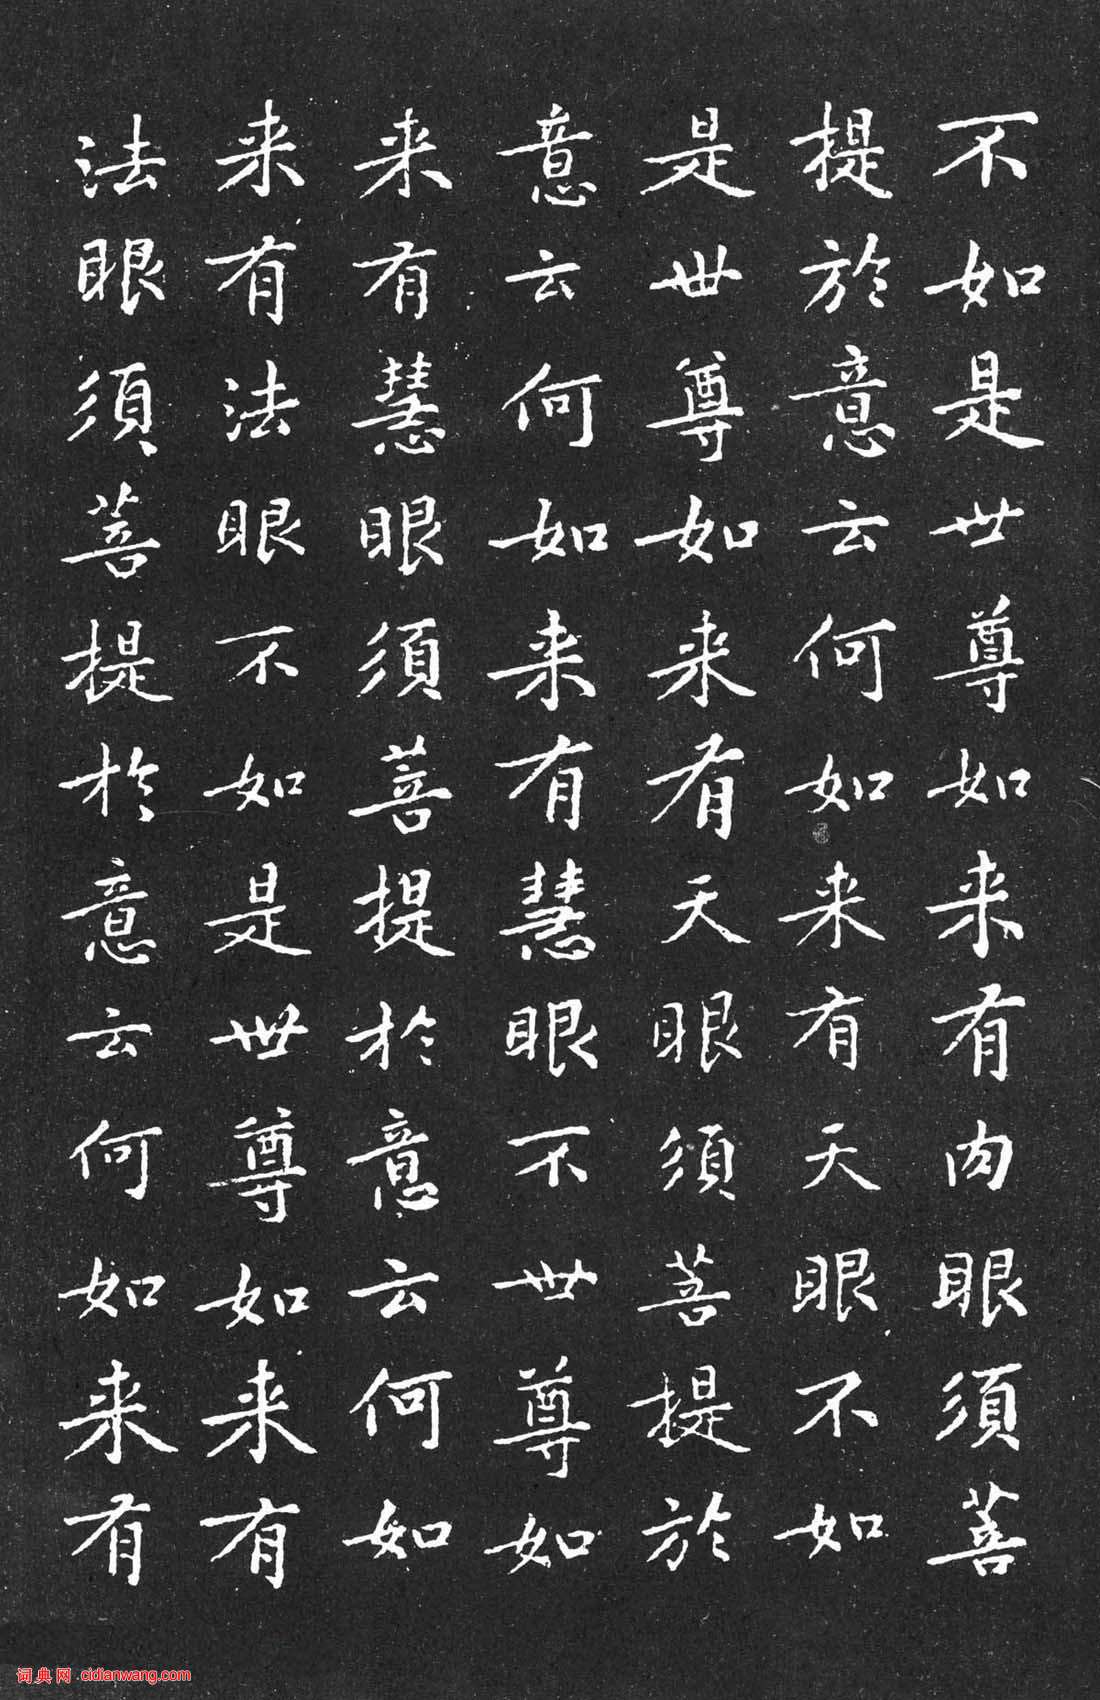 不如是世尊如来有肉眼須菩
提於意云何如来有天眼不如
是世尊如来有天眼須菩提於
意云何如来有慧眼不世尊如
来有慧眼須菩提於意云何如
来有法眼不如是世尊如来有
法眼須菩提於意云何如来有
词典网 cidianwang.com